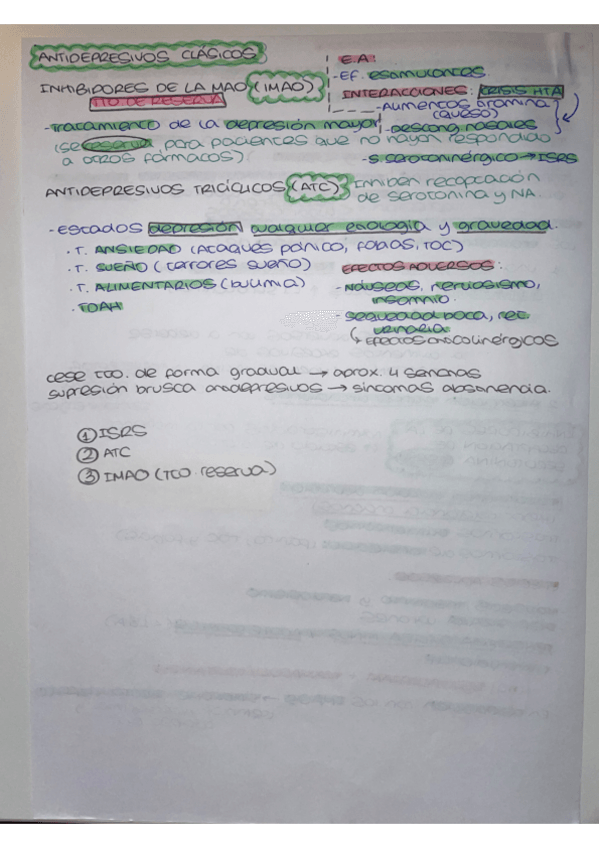 ANTIDEPRESIVOS CLÁSICOS
INHIBIDORES DE LA MAO (IMAO)
TTO DE RESERVA
- Tratamiento de la depresión mayor
(se reserva para pacientes que no hayan respondido
a otros fármacos).
E.A:
- Ef. estimulantes.
INTERACCIONES: CRISIS HTA
- Aumentos tiramina
(queso)
- Descong nasales
- S. serotoninérgico → ISRS
ANTIDEPRESIVOS TRICÍCLICOS (ATC) Inhiben recaptación
de serotonina y NA.
- Estados depresión cualquier etiología y gravedad.
· T. ANSIEDAD (Ataques pánico, fobias, TOC)
· T. SUEÑO (terrores sueño)
· T. ALIMENTARIOS (bulimia)
· TDAH
EFECTOS ADVERSOS:
- Náuseas, nerviosismo,
insomnio.
- Sequedad boca, ret
urinaria
↳ Efectos anticolinérgicos
cese tto. de forma gradual → aprox. 4 semanas
supresión brusca antidepresivos → síntomas abstinencia.
① ISRS
② ATC
③ IMAO (TTO reserva)